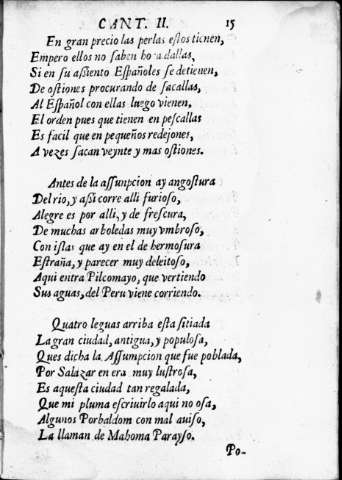 CANT. II. 15
En gran precio las perlas estos tienen,
Empero ellos no saben horadallas,
Si en su assiento Españoles se detienen,
De ostiones procurando de sacallas,
Al Español con ellas luego vienen,
El orden pues que tienen en pescallas
Es facil que en pequeños redejones,
A vezes sacan veynte y mas ostiones.
Antes de la assunpcion ay angostura
Del rio, y assi corre alli furioso,
Alegre es por alli, y de frescura,
De muchas arboledas muy vmbroso,
Con islas que ay en el de hermosura
Estraña, y parecer muy deleitoso,
Aqui entra Pilcomayo, que vertiendo
Sus aguas, del Peru viene corriendo.
Quatro leguas arriba esta sitiada
La gran ciudad, antigua, y populosa,
Ques dicha la Assumpcion que fue poblada,
Por Salazar en era muy lustrosa,
Es aquesta ciudad tan regalada,
Que mi pluma escriuirlo aqui no osa,
Algunos Porbaldom con mal auiso,
La llaman de Mahoma Parayso.
Po-